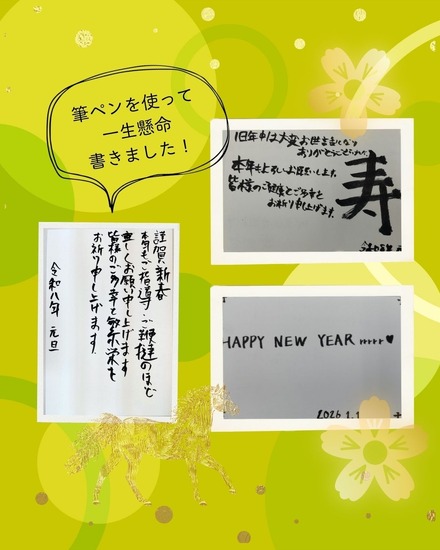 筆ペンを使って
一生懸命
書きました！
旧年中は大変お世話になり
ありがとうございました。
本年も よろしくお願いします。
皆様のご健康とご多幸を
お祈り申し上げます。
寿
謹賀新春
本年もご指導ご鞭撻のほど
宜しくお願い申し上げます
皆様のご多幸と繁栄を
お祈り申し上げます
令和八年 元旦
HAPPY NEW YEAR
2026.1.1